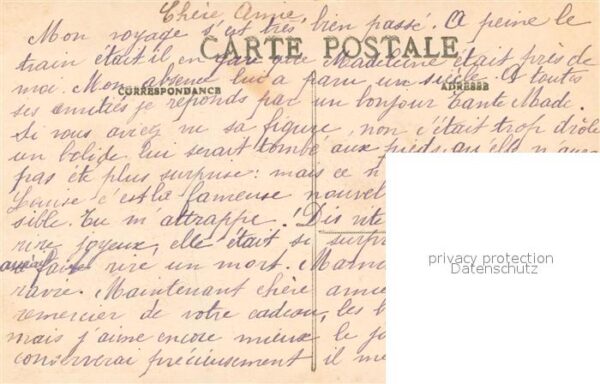 Chère Amie,
Mon voyage s'est très bien passé. A peine le
CARTE POSTALE
train était il en gare que Madeleine était près de
moi. Mon absence lui a paru un siècle. A toutes
CORRESPONDANCE
ADRESSE
ses amitiés je réponds par un bonjour tante Made.
Si vous aviez vu sa figure, non c'était trop drôle
un bolide lui serait tombé aux pieds qu'elle n'aurai
pas été plus surprise: mais ce n
Louise c'est la fameuse nouvel
sible. Tu m'attrappe! Dis
rire joyeux, elle était si surpr
faire rire un mort. Mam
ravie. Maintenant chère amie
remercier de votre cadeau, les b
mais j'aime encore mieux le jo
conserverai précieusement il me
privacy protection
Datenschutz